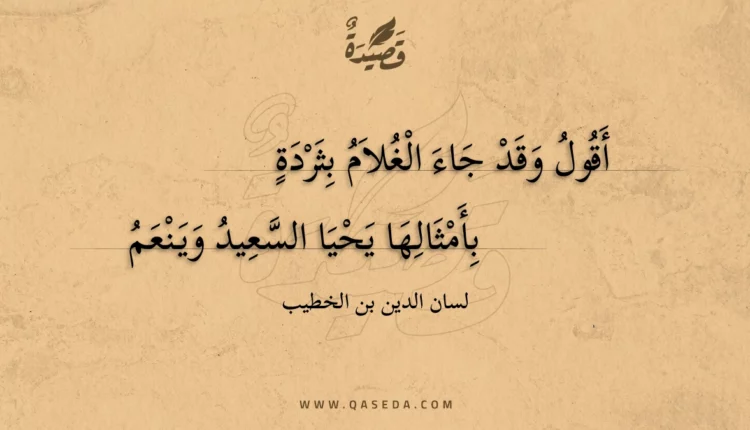 قَصِيدَةٌ
أَقُولُ وَقَدْ جَاءَ الْغُلاَمُ بِثَرْدَةٍ
بِأَمْثَالِهَا يَحْيَا السَّعِيدُ وَيَنْعَمُ
لسان الدين بن الخطيب
WWW.QASEDA.COM